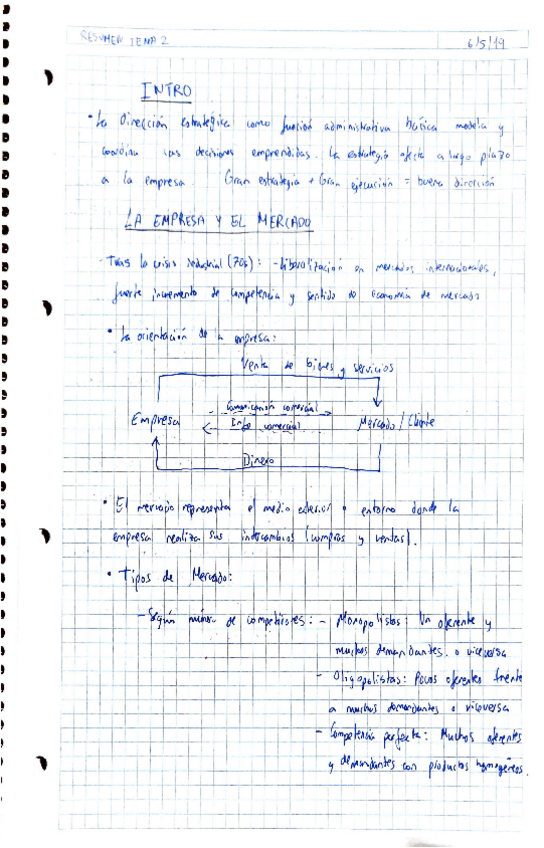 RESUMEN TEMA 2
6/5/19
INTRO
• La Dirección estratégica como función administrativa básica modela y
coordina las decisiones emprendidas. La estrategia afecta a largo plazo
a la empresa. Gran estrategia + Gran ejecución = buena dirección
LA EMPRESA Y EL MERCADO
- Tras la crisis industrial (70s): - liberalización en mercados internacionales,
fuerte incremento de competencia y sentido de economía de mercado
• La orientación de la empresa:
Venta de bienes y servicios
Comunicación comercial
Empresa
Mercado / Cliente
Info comercial
Dinero
• El mercado representa el medio exterior o entorno donde la
empresa realiza sus intercambios (compras y ventas).
• Tipos de Mercado:
- Según núm. de competidores: - Monopolistas: Un oferente y
muchos demandantes. o viceversa
- Oligopolistas: Pocos oferentes frente
a muchos demandantes o viceversa
- Competencia perfecta: Muchos oferentes
y demandantes con productos homogéneos.